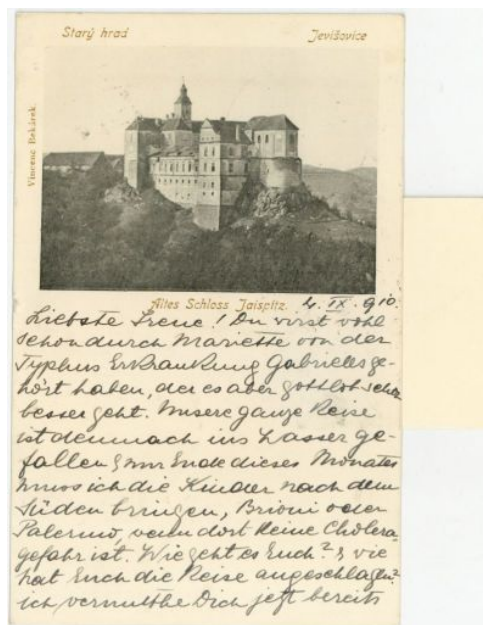 Starý hrad Jevišovice
Vincenc Bekárek
Altes Schloss Jaispitz. 4. IX. 910.
Liebste Irene! Du wirst wohl
schon durch Mariette von der
Typhus Erkrankung Gabrieles ge-
hört haben, der es aber gottlob schon
besser geht. Unsere ganze Reise
ist demnach ins Wasser ge-
fallen & nur Ende dieses Monates
muss ich die Kinder nach dem
Süden bringen, Brioni oder
Palermo, wenn dort keine Cholera,
gefahr ist. Wie geht es Euch? & wie
hat Euch die Reise angeschlagen?
ich vermuthe Dich jetzt bereits